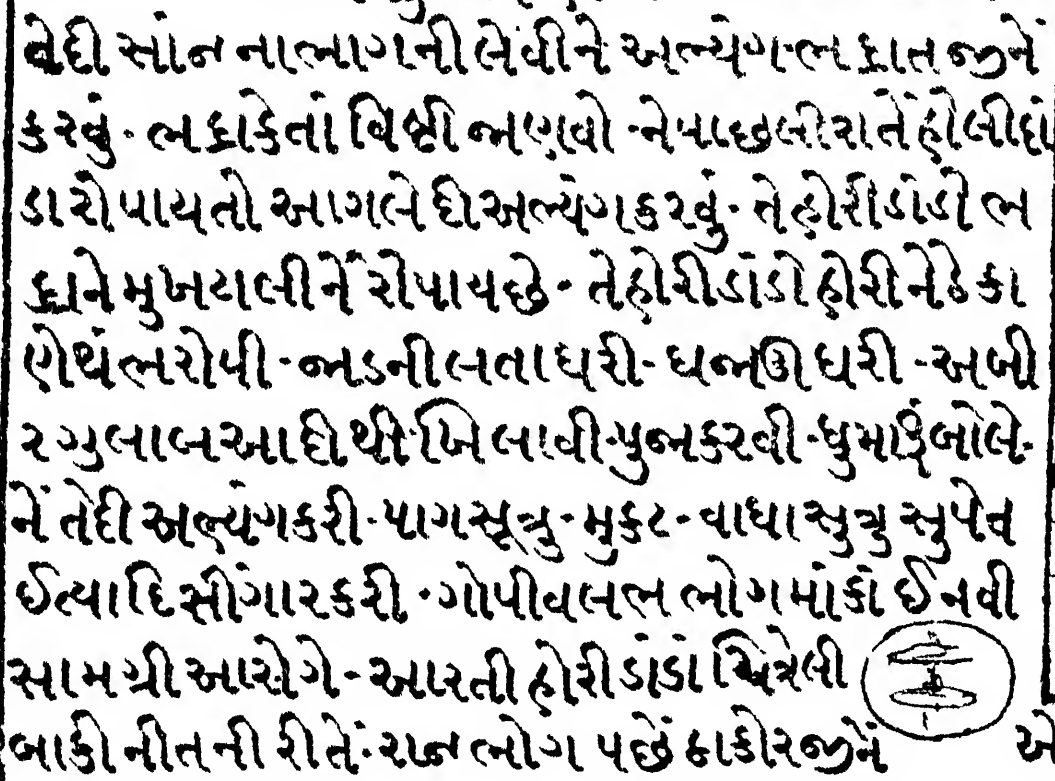 તેદી સાંન નાભાગની લેવીને અભ્યંગ-ભદ્રાતજીને
કરવું - ભદ્રાકેતાં વિષ્ટી જાણવો -નેપાછલીરાતેંહોલીદાં
ડારોપાયતો આગલેદીઅભ્યંગકરવું- તેહોરીડાંડો ભ
દ્રાનેમુખટાલીનેંરોપાયછે - તેહોરીડાંડોહોરીનેઠેકા
ણેથંભરોપી - જાડનીલતાધરી- ધજાઊધરી -અબી
રગુલાલઆદીથીખિલાવી-પુજાકરવી-ધુમારુંબોલે-
નેંતેદીઅભ્યંગકરી-પાગસૂત્રુ-મુકટ-વાઘાસુત્રુસુપેત
ઈત્યાદિસીંગારકરી -ગોપીવલભભોગમાંકાંઈનવી
સામગ્રીઆરોગે-આરતીહોરીડાંડાંચિત્રેલી
બાકીનીતનીરીતેં-રાજભોગ પછેંઠાકોરજીનેં એ